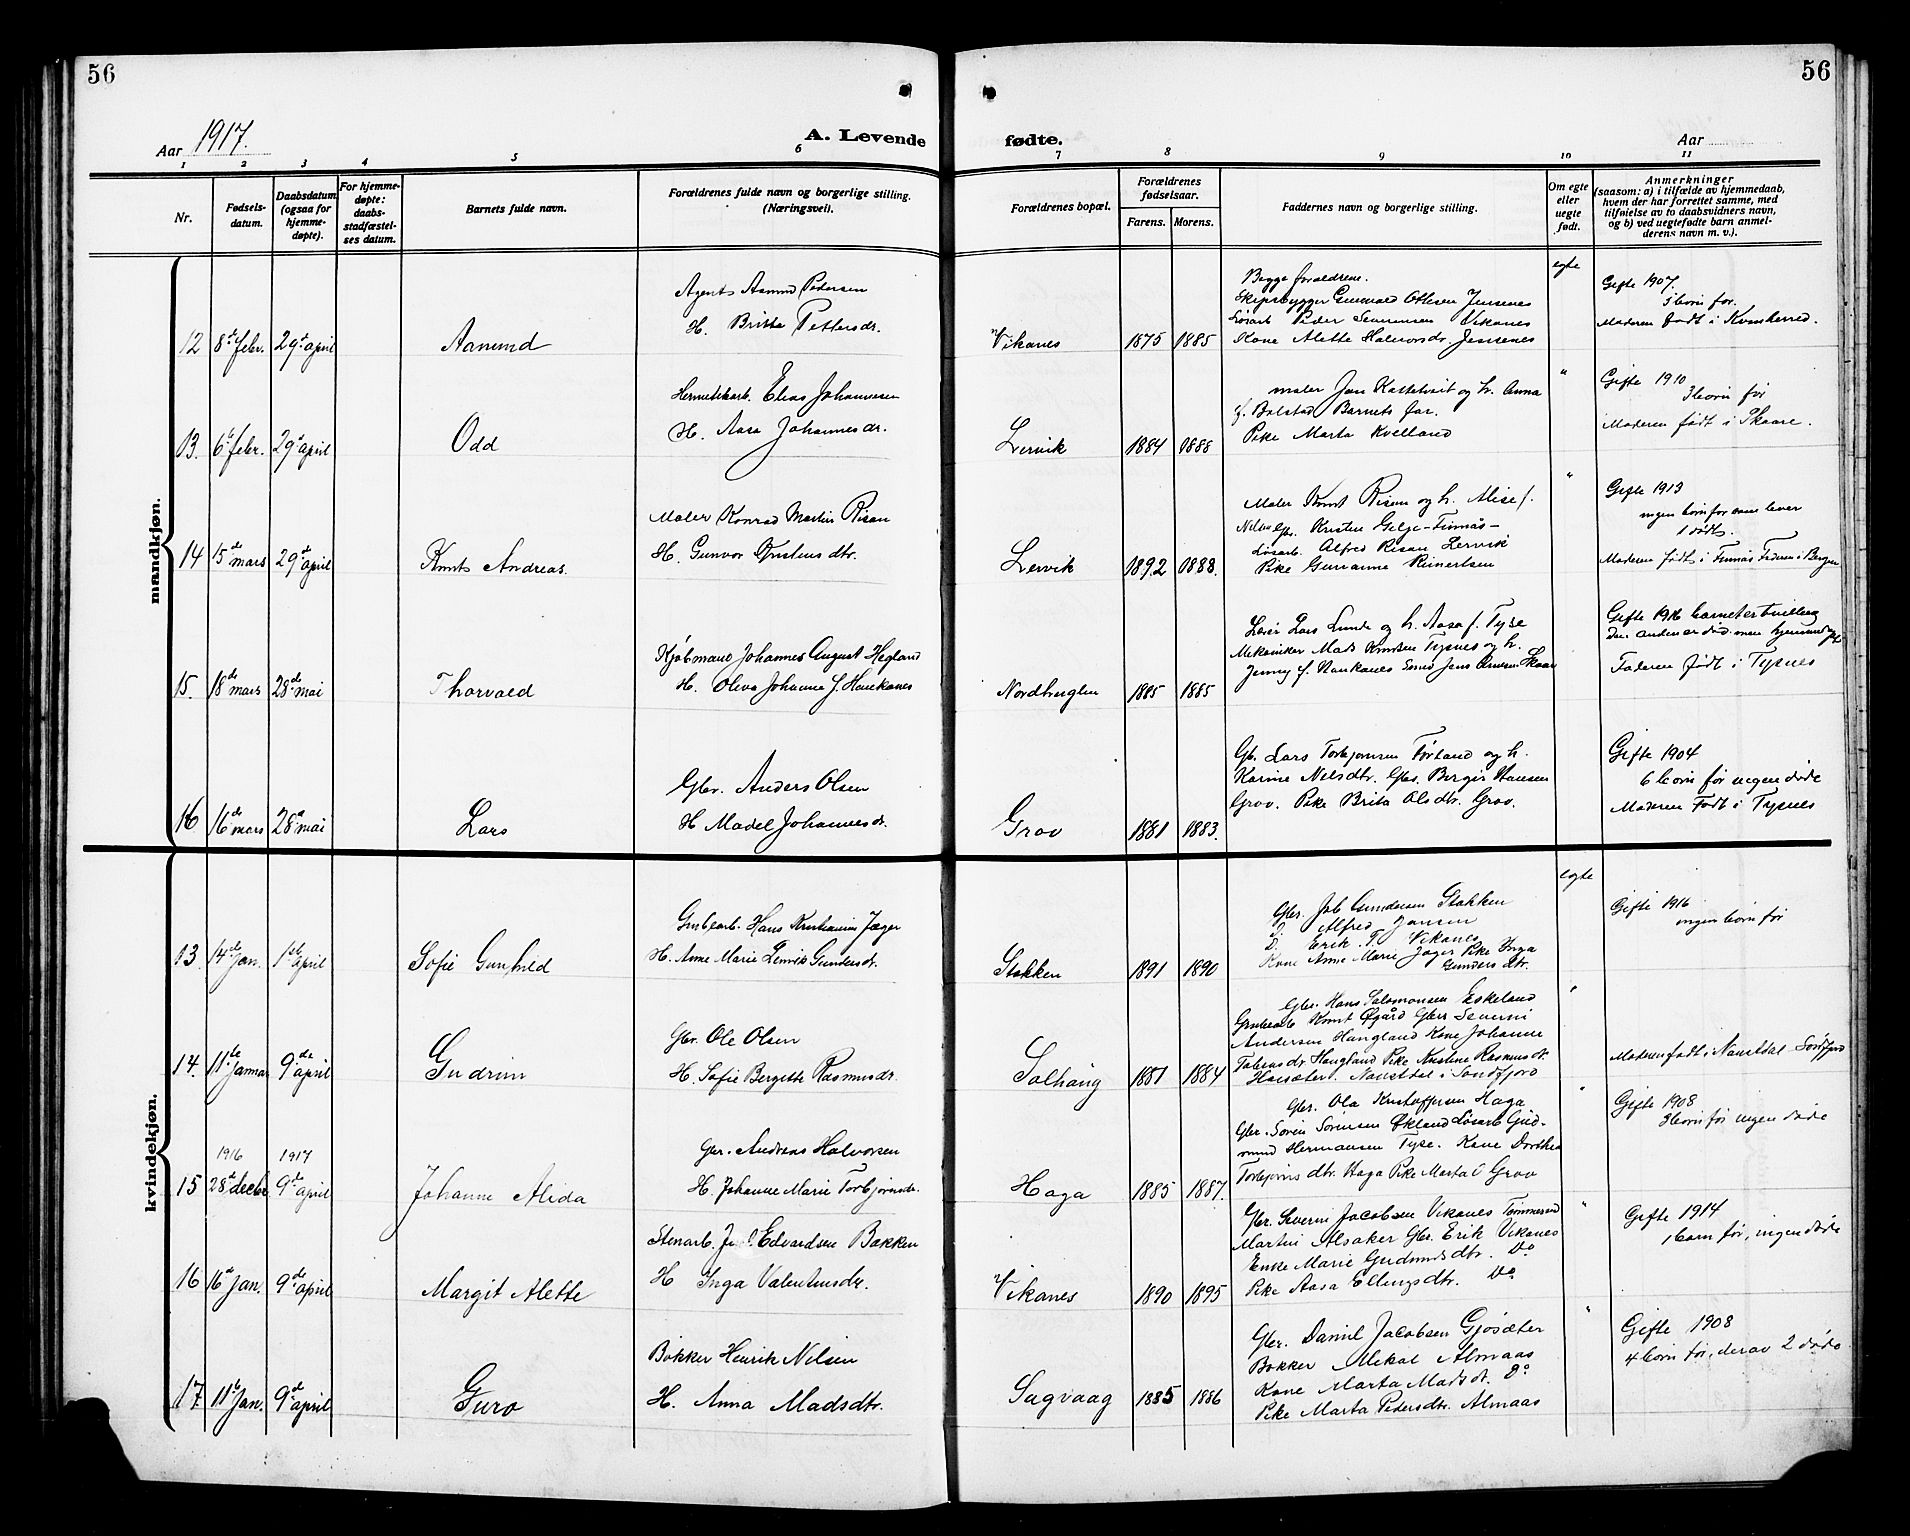 56
56
Aar 1917.
A. Levende
fødte.
Aar
1 2 3 4 5 6 7 8 9 10 11
Nr.
Fødselsdatum.
Daabsdatum (ogsaa for hjemmedøpte).
For hjemmedøpte: daabsstadfæstelses datum.
Barnets fulde navn.
Forældrenes fulde navn og borgerlige stilling. (Næringsvei).
Forældrenes bopæl.
Forældrenes fødselsaar.
Farens. Morens.
Faddernes navn og borgerlige stilling.
Om egte eller uegte født.
Anmerkninger
(saasom: a) i tilfælde av hjemmedaab, hvem der har forrettet samme, med tilføielse av to daabsvidners navn, og b) ved uegtefødte barn anmelderens navn m. v.).
mandkjøn.
12 8de febr. 29de april
Aamund
Agent Aamund Pedersen
H. Britta Pettersdr.
Vikanes 1875 1885
Begge forældrene.
Skipsbygger Gunnvald Ottesen Jensenes
Løsarb Peder Severinsen Vikanes
Kone Alette Halvorsdr. Jensenes
egte
Gifte 1907.
født i Kvinherred.
13. 6te febr. 29de april
Odd
Hermetikarb. Elias Johannesen
H. Aasa Johannesdr.
Lervik 1884 1888
f. Bolstad Barnets far.
Pike Marta Kvelland
"
Gifte 1910
3 born før
Moderen født i Skaare.
14 15de mars 29de april
Knut Andreas.
Maler Konrad Martin Risan
H. Gunvor Kristensdtr.
Lervik 1892 1888.
Maler Knut Risan og h. Alise f.
Løsarb. Alfred Risan Lervik
Pike Gurianne Reinertsen
"
Gifte 1913
ingen born før som lever
1 dødt.
Moderen født i Finnås Faderen i Bergen
15. 18de mars 28de mai
Thorvald
Kjøbmand Johannes August Hegland
H. Oliva Johanna f. Haukanes
1885 1885
Mekaniker Mads Knutsen Tysnes og h.
Gifte 1916 barnet er tvilling
Faderen født i Tysnes
16 16de mars 28de mai
Lars
Gbr. Anders Olsen
H Madel Johannesdr.
Grov 1881 1883.
Gbr. Lars Torbjørnsen Førland og h.
Karine Nelsdtr. Gbr. Berger Hansen
Grov. Pike Brita Olsdtr. Grov.
Gifte 1904
6 born før ingen døde
Moderen Født i Tysnes
kvindekjøn.
13. 14de Jan. 1ste april
Sofie Gunhild
Grubearb. Hans Kristiansen Jæger
H. Anne Marie Lervik Gundersdr.
Stokken 1891 1890
Gbr. Job Gundersen Stokken
D. Alfred Jansen
D. Erik T. Vikanes
Kone Anne Marie Jæger Pike Inga
Gundersdtr.
egte
Gifte 1916
ingen born før
14. 11te Januar 9de april
Gudrun
Gbr. Ole Olsen
H. Sofie Bergitte Rasmusdr.
Solhaug 1881 1884
Gbr. Hans Salomonsen Eskeland
Grubearb Knut Øgård Gbr Severin
Andersen Haugland Kone Johanne
Tobiasdr. Haugland Pike Kristine Rasmusdr.
Naustdal i Søndfjord
"
Moderen født i Naustdal Søndfjord
1916 1917
15 28de decbr. 9de april
Johanne Alida
Gbr. Andreas Halvorsen
H. Johanne Marie Torbjørnsdr.
Haga 1885 1887.
Gbr. Ola Kristoffersen Haga
Gbr. Søren Sørensen Økland Løsarb. Gudmund Hermansen Tyse. Kone Dorthea
Torbjørns dtr. Haga Pike Marta Grov
"
Gifte 1908
3 born før ingen døde
16 16de Jan. 9de april
Margit Alette
Stenarb. Edvardsen Bakken
H Inga Valentinsdr.
Vikanes 1890 1895
Gbr. Severin Jacobsen Vikanes Tømmermd
Martin Alsaker Gbr. Erik Vikanes
Enke Marie Gudmundsdtr. Do
Pike Aasa Ellingsdtr. Do.
"
Gifte 1914
1 barn før, ingen døde
17. 11te Jan. 9de april
Guro
Bøkker Henrik Nilsen
H. Anna Madsdtr.
Sagvaag 1885 1886
Gbr. Daniel Jacobsen Gjøsæter
Bøkker Mikal Almaas
Kone Marta Madsdt. Do
Pike Marta Pedersdtr. Almaas
"
Gifte 1908
4 born før, derav 2 døde